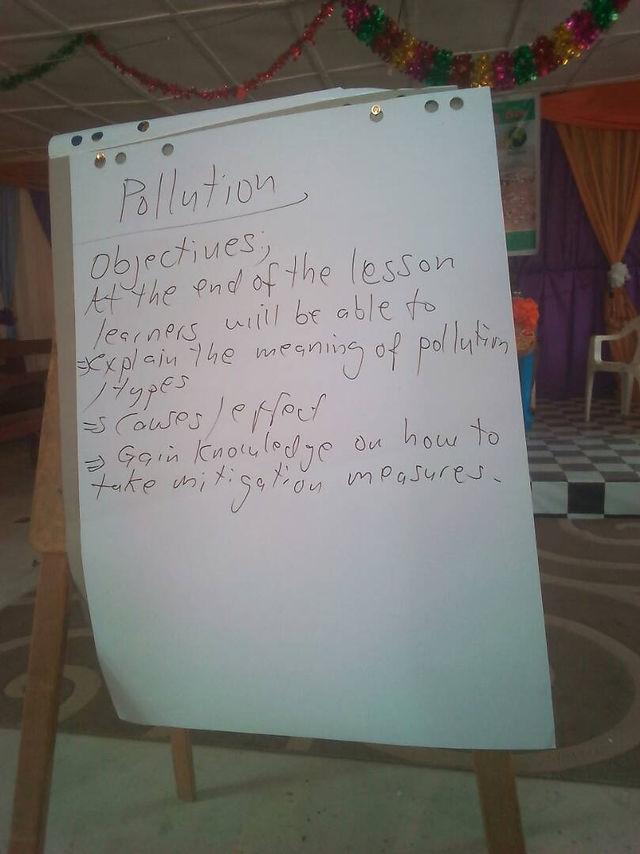 Pollution
Objectives;
At the end of the lesson
learners will be able to
⇒explain the meaning of pollution
/types
⇒ Causes/effect
⇒ Gain knowledge on how to
take mitigation measures.